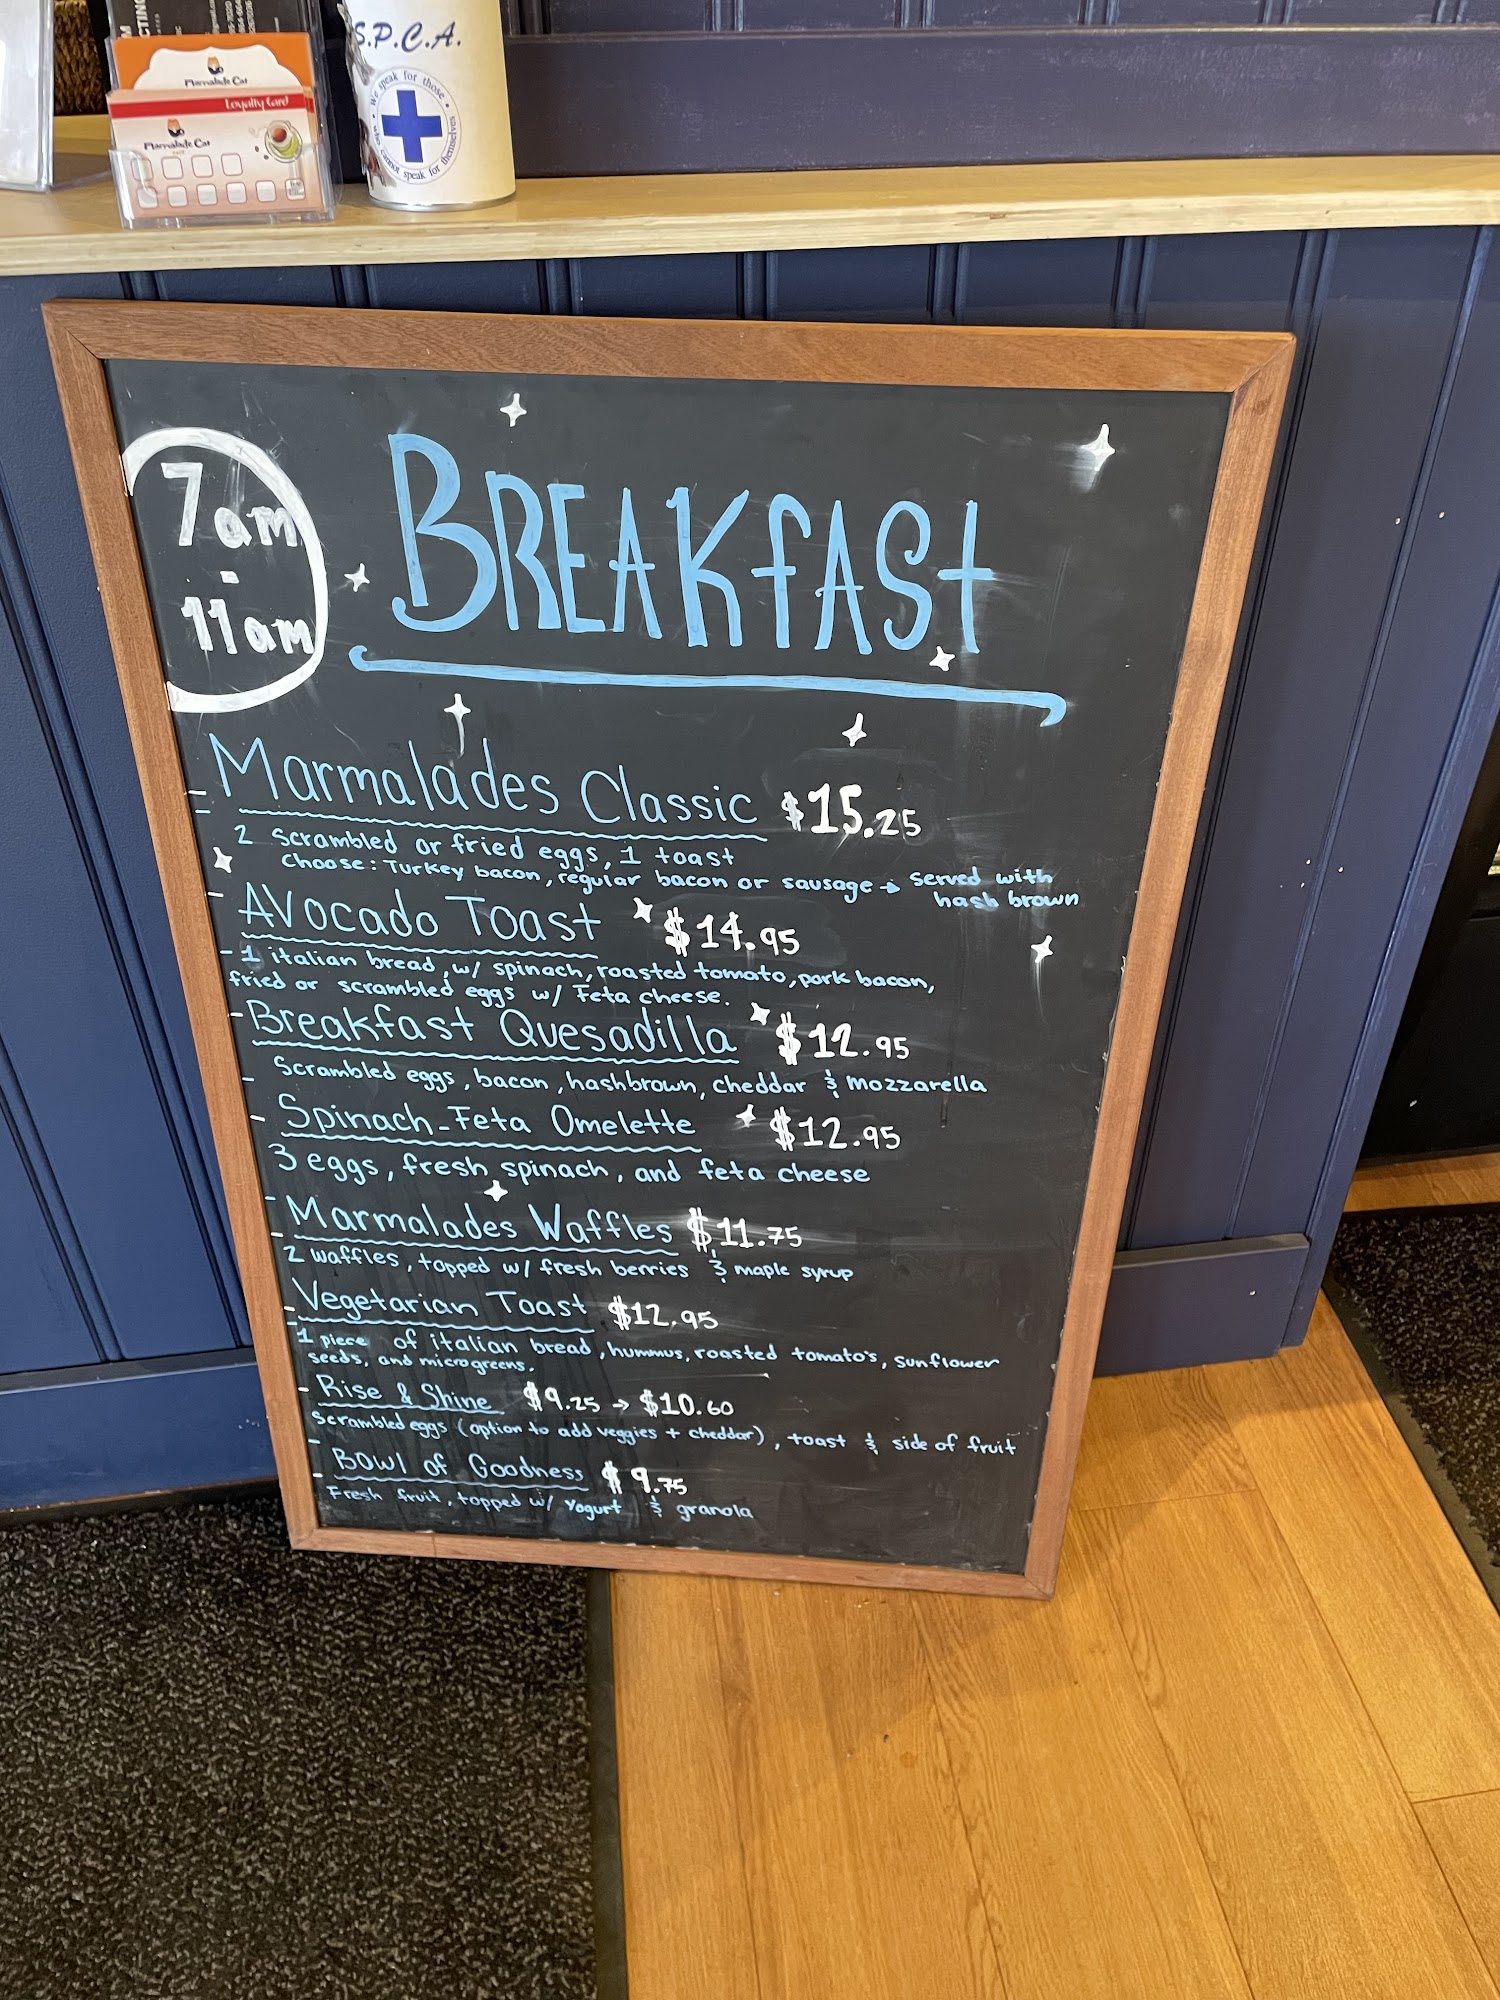 S.P.C.A.
We speak for those
who cannot speak for themselves
Marmalade Cat
Loyalty Card
Marmalade Cat
7am
-
11am
BREAKfASt
- Marmalades Classic $15.25
2 scrambled or fried eggs, 1 toast
choose: Turkey bacon, regular bacon or sausage → served with
hash brown
- Avocado Toast $14.95
- 1 italian bread, w/ spinach, roasted tomato, pork bacon,
fried or scrambled eggs w/ Feta cheese.
- Breakfast Quesadilla $12.95
- Scrambled eggs, bacon, hashbrown, cheddar & mozzarella
- Spinach-Feta Omelette $12.95
3 eggs, fresh spinach, and feta cheese
- Marmalades Waffles $11.75
2 waffles, topped w/ fresh berries & maple syrup
- Vegetarian Toast $12.95
1 piece of italian bread, hummus, roasted tomato's, sunflower
seeds, and microgreens.
- Rise & Shine $9.25 → $10.60
Scrambled eggs (option to add veggies + cheddar), toast & side of fruit
- Bowl of Goodness $9.75
Fresh fruit, topped w/ yogurt & granola